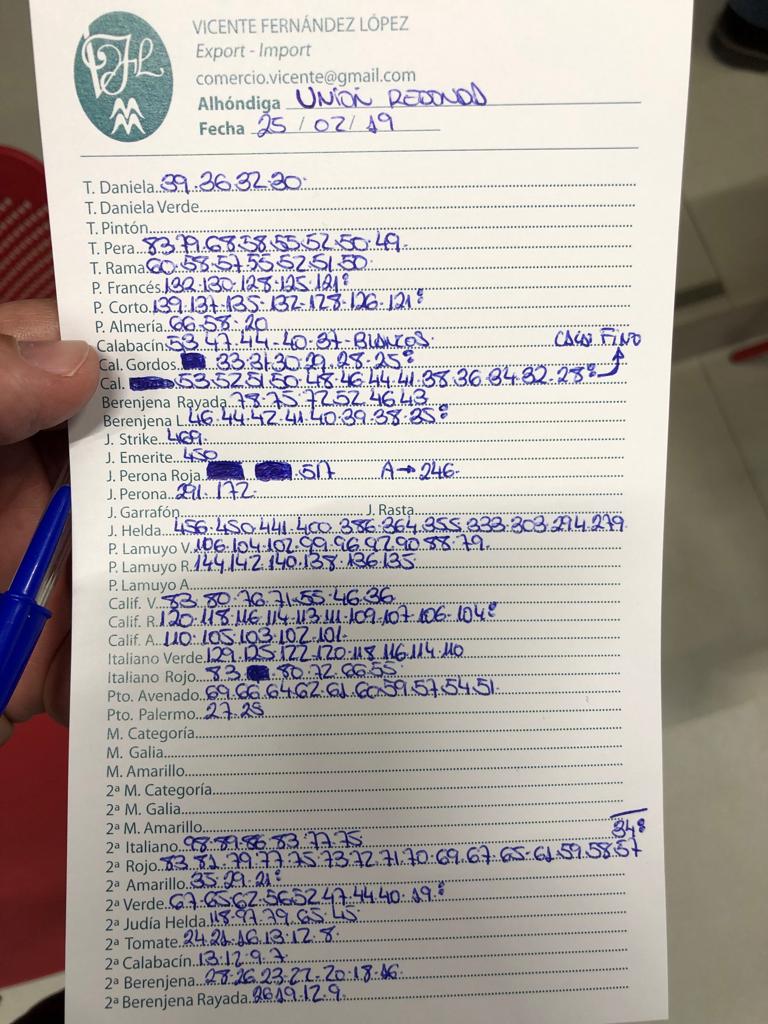 VICENTE FERNÁNDEZ LÓPEZ
Export - Import
comercio.vicente@gmail.com
Alhóndiga UNIÓN REDONDA
Fecha 25 / 02 / 19
T. Daniela 39.36.32.30.
T. Daniela Verde
T. Pintón
T. Pera 83.79.68.58.55.52.50.49.
T. Rama 60.58.57.55.52.51.50
P. Francés 132.130.128.125.121
P. Corto 139.137.135.132.128.126.121
P. Almería 66.58.20
Calabacín 53.47.44-40.37-BLANCOS CALA. FINO
Cal. Gordos 33.31.30.29.28.25
Cal. 53.52.51.50.48.46.44.41.38.36.34.32.28
Berenjena Rayada 78.75.72.52.46.43
Berenjena L. 46.44.42.41.40.39.38.35
J. Strike 469.
J. Emerite 450
J. Perona Roja 517 A→246.
J. Perona 291.172.
J. Garrafón J. Rasta
J. Helda 456.450.441.400.386.364.355.333.303.294.279
P. Lamuyo V. 106.104.102.99.96.92.90.88.79.
P. Lamuyo R. 144.142.140.138.136.135
P. Lamuyo A.
Calif. V. 83.80.76.71.55.46.36
Calif. R. 120.118.116.114.113.111.109.107.106.104
Calif. A. 110.105.103.102.101.
Italiano Verde 129.125.122.120.118.116.114.110
Italiano Rojo 83. 80.72.66.55
Pto. Avenado 69.66.64.62.61.60.59.57.54.51.
Pto. Palermo 27.25
M. Categoría
M. Galia
M. Amarillo
2ª M. Categoría
2ª M. Galia
2ª M. Amarillo
2ª Italiano 98.89.86.83.77.75 34
2ª Rojo 83.81.79.77.75.73.72.71.70.69.67.65.61.59.58.57
2ª Amarillo 35.29.21
2ª Verde 67.65.62.56.52.47.44.40.19
2ª Judía Helda 118.97.79.65.45
2ª Tomate 24.21.16.13.12.8.
2ª Calabacín 13.12.9.7
2ª Berenjena 28.26.23.22.20.18.16
2ª Berenjena Rayada 26.19.12.9.